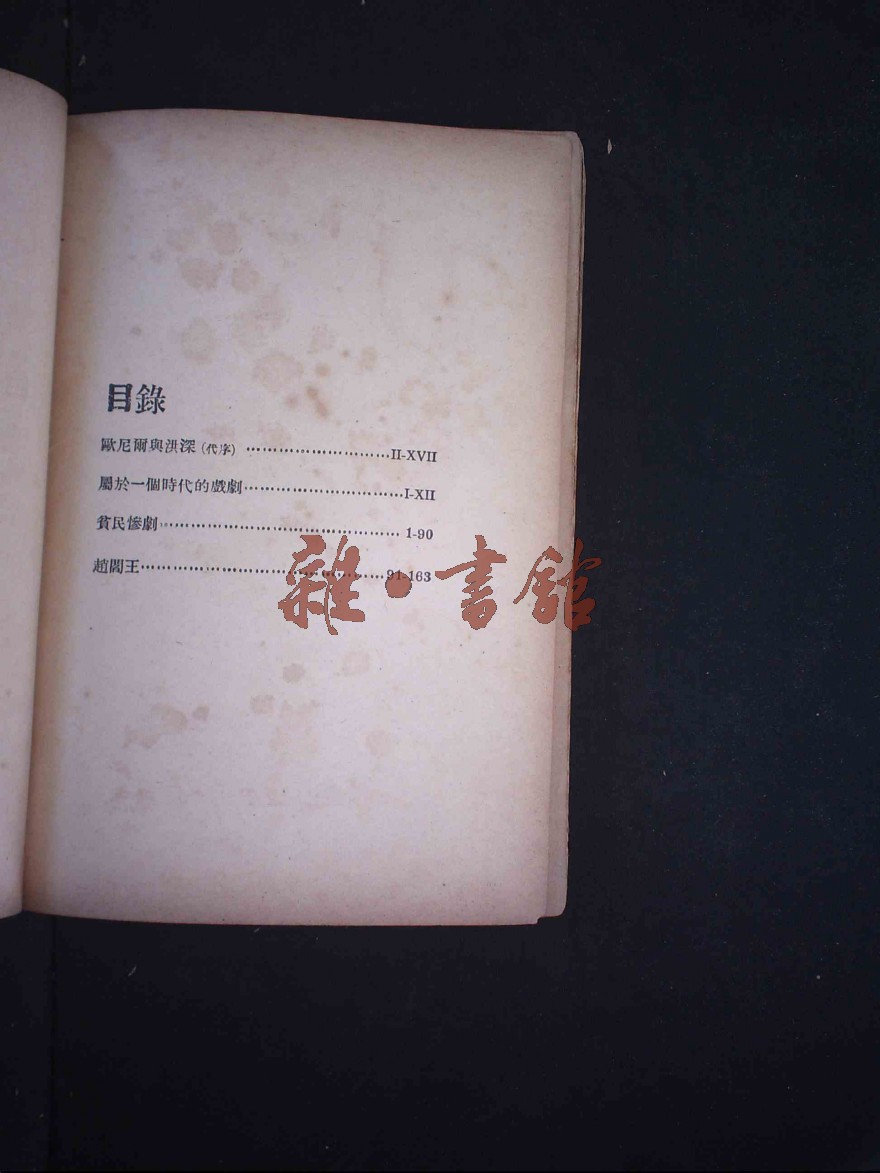 目錄
歐尼爾與洪深(代序)……………………………II-XVII
屬於一個時代的戲劇……………………………I-XII
貧民慘劇……………………………………1-90
趙閻王……………………………………91-163
雜·書館